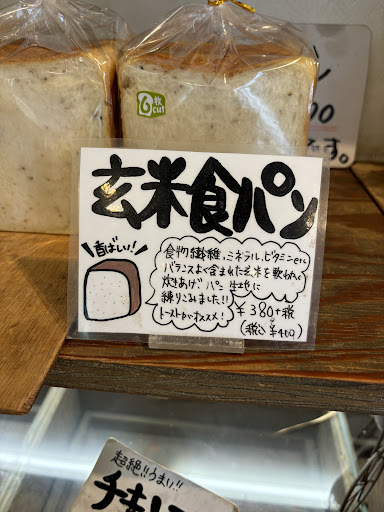 6枚
cut
ン
00
です。
玄米食パン
香ばしい!
食物繊維、ミネラル、ビタミンetc
バランスよく含まれた玄米を軟らかく
炊きあげ パン生地に
練りこみました!!
トーストがオススメ!
¥380+税
(税込¥410)
超絶!!うまい!!
チキ